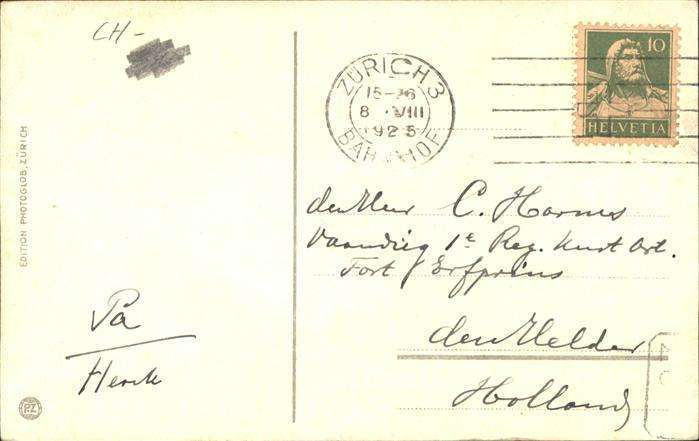 CH-
10
HELVETIA
ZÜRICH 3
8 · VIII
1925
BAHNHOF
EDITION PHOTOGLOB, ZÜRICH
den Heer C. Harmes
Vaandrig 1e Reg. Kust Art.
Fort Erfprins
den Helder
Holland
Pa
Henk
PZ